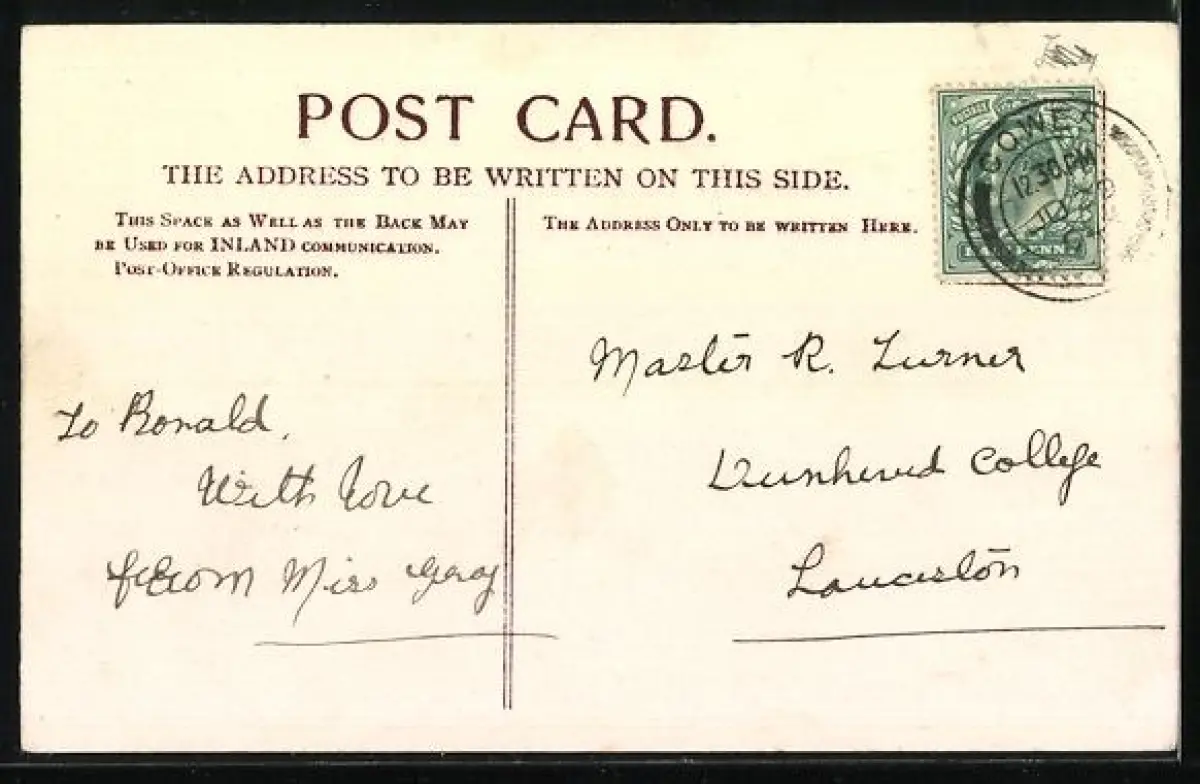 POST CARD.
THE ADDRESS TO BE WRITTEN ON THIS SIDE.
THIS SPACE AS WELL AS THE BACK MAY
BE USED FOR INLAND COMMUNICATION.
POST-OFFICE REGULATION.
THE ADDRESS ONLY TO BE WRITTEN HERE.
COWES
12.30 PM
To Ronald,
With love
from Miss
Master R. Turner
Dunheved College
Launceston